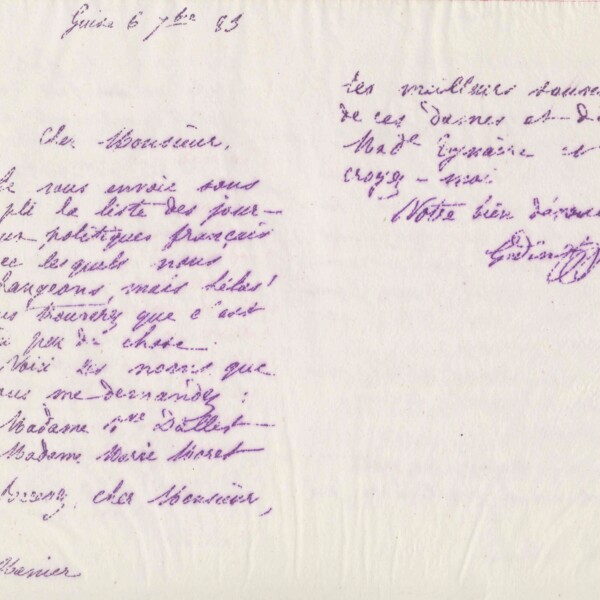 Guise 6 7bre 83
Cher Monsieur,
Je vous envoie sous
pli la liste des jour-
politiques français
lesquels nous
mais hélas!
trouverez que c'est
peu de chose.
Voici les noms que
vous me demandez:
Madame Vve Dallet
Madame Marie Moret
cher Monsieur,
les meilleurs
de ces dames et de
Made et
croyez-moi
Votre bien
Godin